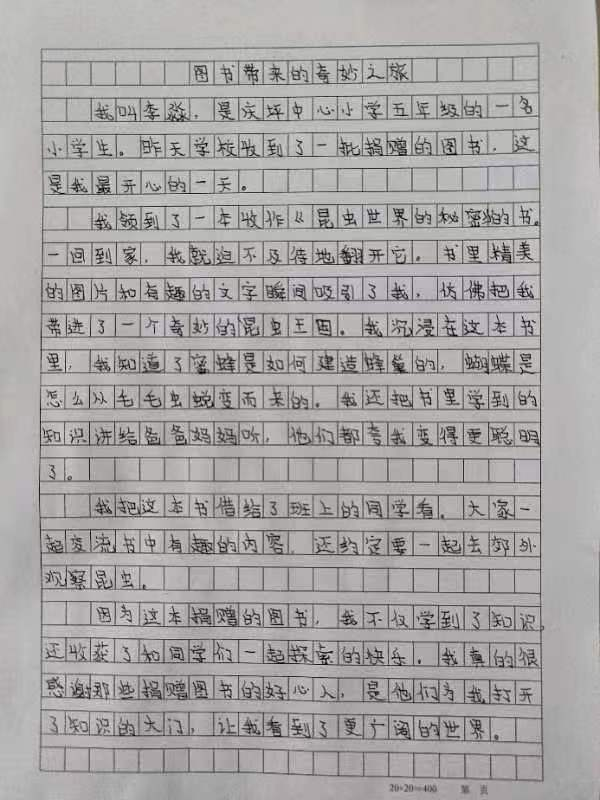 图书带来的奇妙之旅
我叫李淼，是庆坪中心小学五年级的一名
小学生。昨天学校收到了一批捐赠的图书，这
是我最开心的一天。
我领到了一本收作《昆虫世界的秘密的书。
一回到家，我就迫不及待地翻开它。书里精美
的图片和有趣的文字瞬间吸引了我，仿佛把我
带进了一个奇妙的昆虫王国。我沉浸在这本书
里，我知道了蜜蜂是如何建造蜂巢的，蝴蝶是
怎么从毛毛虫蜕变而来的。我还把书里学到的
知识讲给爸爸妈妈听，他们都夸我变得更聪明
了。
我把这本书借给了班上的同学看。大家一
起交流书中有趣的内容，还约定要一起去郊外
观察昆虫。
因为这本捐赠的图书，我不仅学到了知识，
还收获了和同学们一起探索的快乐。我真的很
感谢那些捐赠图书的好心人，是他们为我打开
了知识的大门，让我看到了更广阔的世界。
20×20=400 第 页